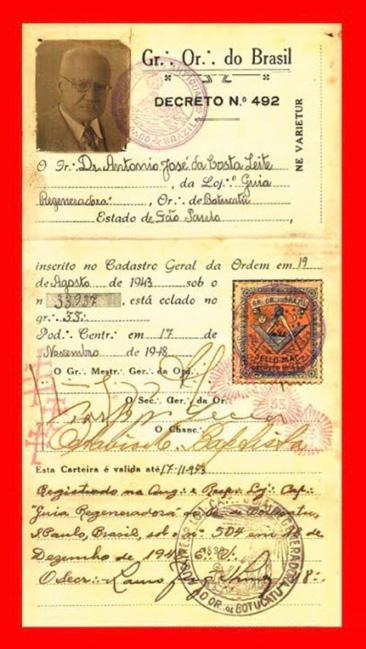 Gr∴ Or∴ do Brasil
DECRETO N.º 492
NE VARIETUR
O Ir∴ Dr. Antonio José da Costa Leite
, da Loj∴ Guia
Regeneradora, Or∴ de Botucatú
Estado de São Paulo,
inscrito no Cadastro Geral da Ordem em 19
de Agosto de 1943 sob o
n 33937, está colado no
gr∴ 33∴
Pod∴ Centr∴ em 17 de
Novembro de 1948
GR. OR. DO BRASIL
SELLO MAÇ.
O Gr∴ Mestr∴ Ger. da Ord.
O Sec. Ger. da Or.
O Chanc.
Baptista
Esta Carteira é valida até 17-11-953
Registrado na Aug∴ e Resp∴ Loj∴ Cap∴
"Guia Regeneradora" Or∴ de Botucatu,
S. Paulo, Brasil, sob o nº 504 em de
Dezembro de 194
O Secr∴
OR. DE BOTUCATU